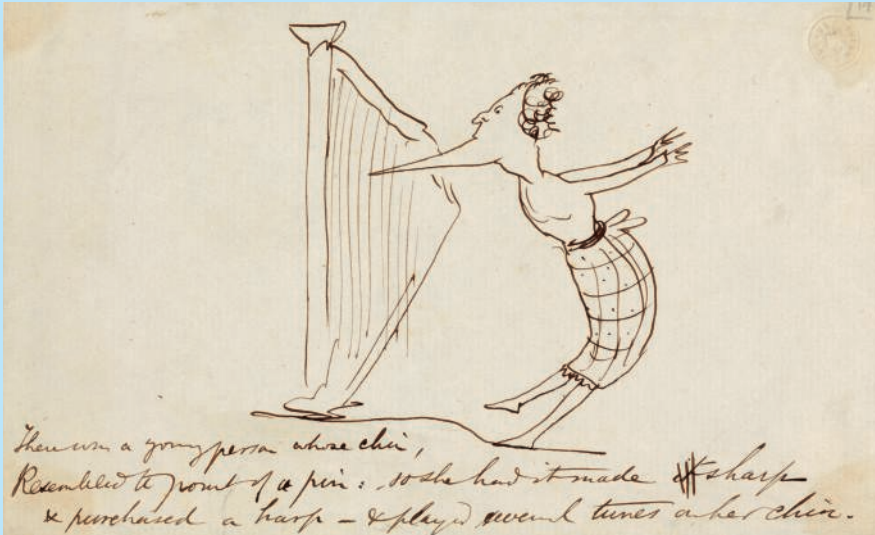 There was a young person whose chin,
Resembled the point of a pin: so she had it made sharp
& purchased a harp – & played several tunes on her chin.